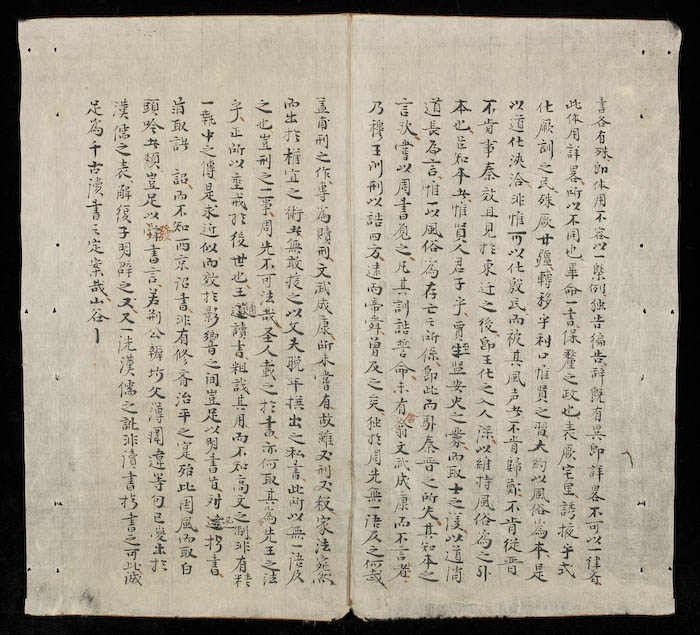 書各有殊即体用不容以一槩例独告徧告辞既有異即詳畧不可以一律吝
此体用詳畧所以不同也畢命一書保釐之政也表厥宅里誘掖乎式
化厥訓之民殊厥井疆轉移乎利口惟賢之習大約以風俗為本是
以道化浹洽非惟可以化殷民而被其風声者不肯歸鄭不肯從晋
不肯事秦效且見於東迁之後即王化之入人深以維持風俗為之引
本也岂知本者惟賢人君子乎賈而取士之議以道消
道長為言惟一以風俗為存亡之所係即此而引秦晋之所失其知本之
言欤嘗以周書覔之凡其訓誥誓命未有舍文武成康而不言者
乃穆王訓刑以誥四方遠而帝舜曾及之矣独於周先無一語及之何哉
盖甫刑之作專為贖刑文武成康所未嘗有故雖刑殺家法宛然
而出於權宜之術者無敢援之以父夫晚年撰出之私書此所以無一語及
之也豈刑之一事周先不可法哉圣人載之於書亦何取其為先王之法
乎正所以垂戒於後世也王通讀書粗識其用而不知高文之制非有精
一執中之傳是求近似而效於影響之间豈足以明書旨对書
誥 詔而不知西京诏書非有修齊治平之寔殆此周風而取白
頭吟者類豈足以發書言若荆公辨圻父薄違等句已突出於
漢儒之表解復子明辟之又一洗漢儒之訛非讀書書之可此誠
足為千古讀書之定案哉山谷